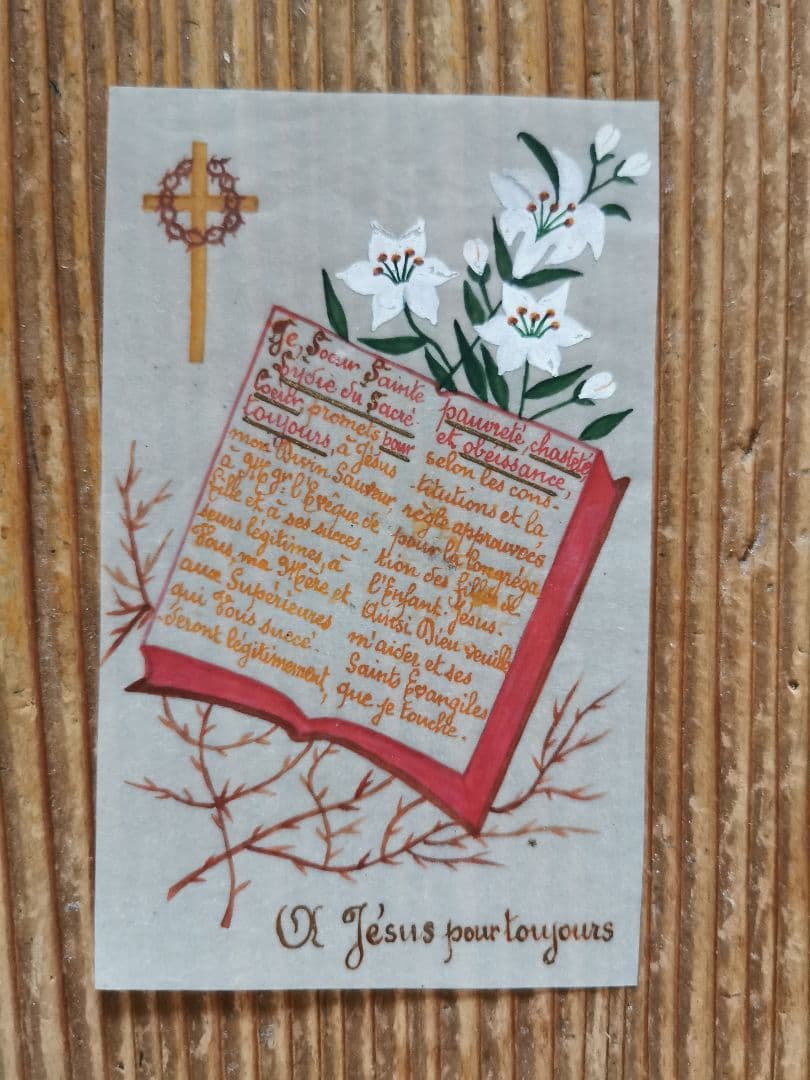 Je, Soeur Sainte
Lydie du Sacré-
Coeur promets pour
toujours, à Jésus
mon Divin Sauveur,
à Mgr l'Evêque de
fille et à ses succes-
seurs légitimes à
Vous, ma Mère et
aux Supérieures
qui Vous succé-
deront légitimement,
pauvreté, chasteté,
et obeissance,
selon les cons-
titutions et la
règle approuvées
pour la Congréga-
tion des filles de
l'Enfant-Jésus.
Ainsi Dieu veuille
m'aider et ses
Saints Evangiles
que je touche.
A Jésus pour toujours